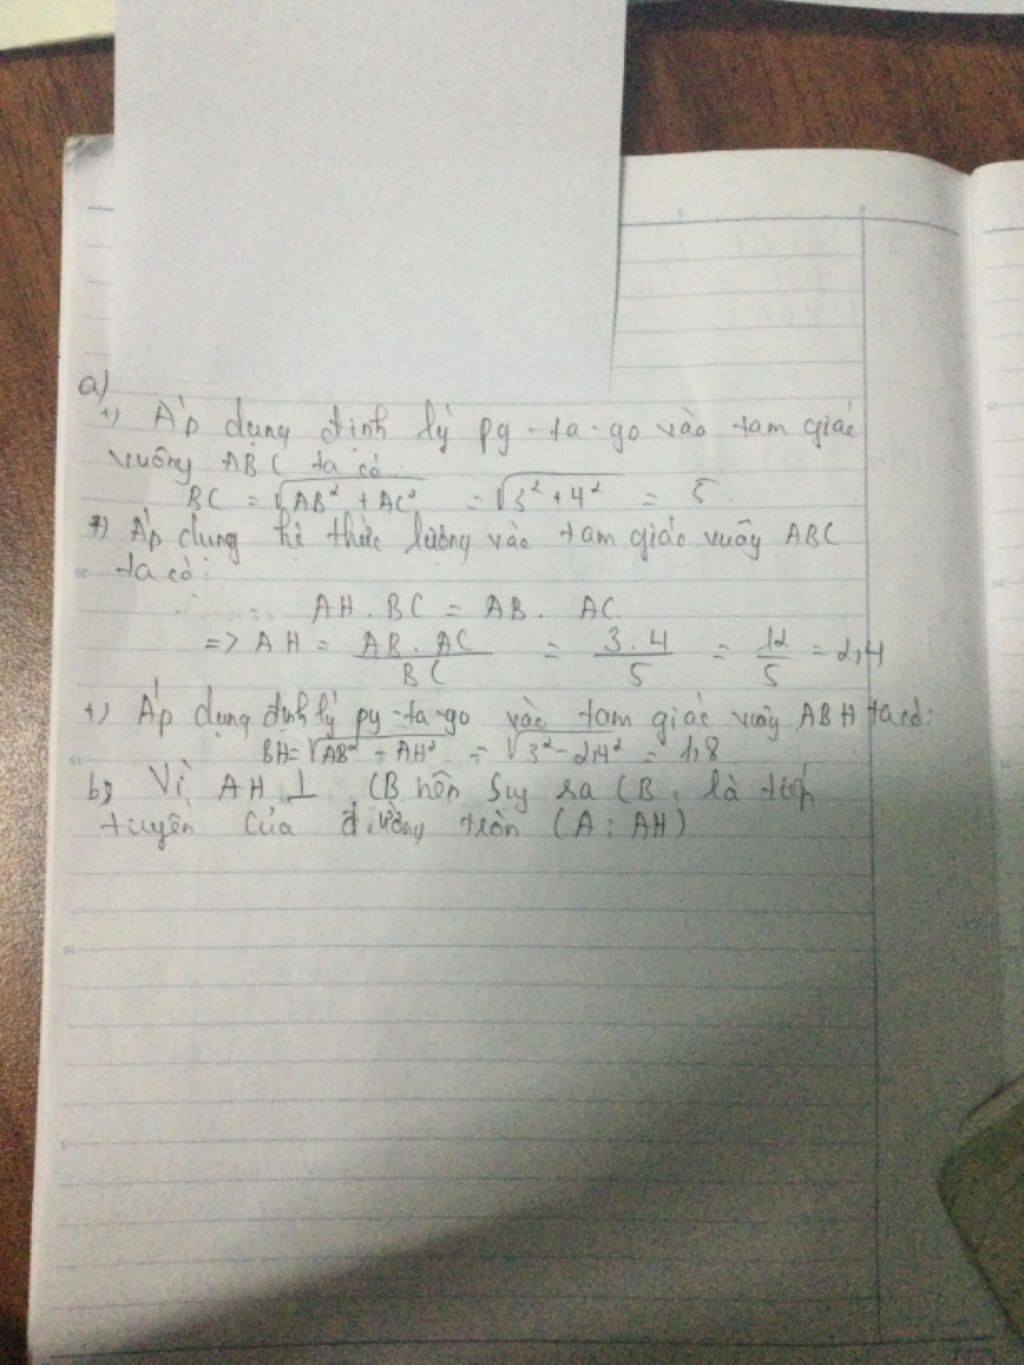 a)
+) Áp dụng định lý py-ta-go vào tam giác
vuông ABC ta có
BC = √AB² + AC² = √3² + 4² = 5.
+) Áp dụng hệ thức lượng vào tam giác vuông ABC
ta có:
AH . BC = AB . AC
=> AH = AB . AC / BC = 3 . 4 / 5 = 12 / 5 = 2,4
+) Áp dụng định lý py-ta-go vào tam giác vuông ABH ta có:
BH = √AB² - AH² = √3² - 2,4² = 1,8
b, Vì AH ⊥ CB nên suy ra CB là tiếp
tuyến của đường tròn (A ; AH)